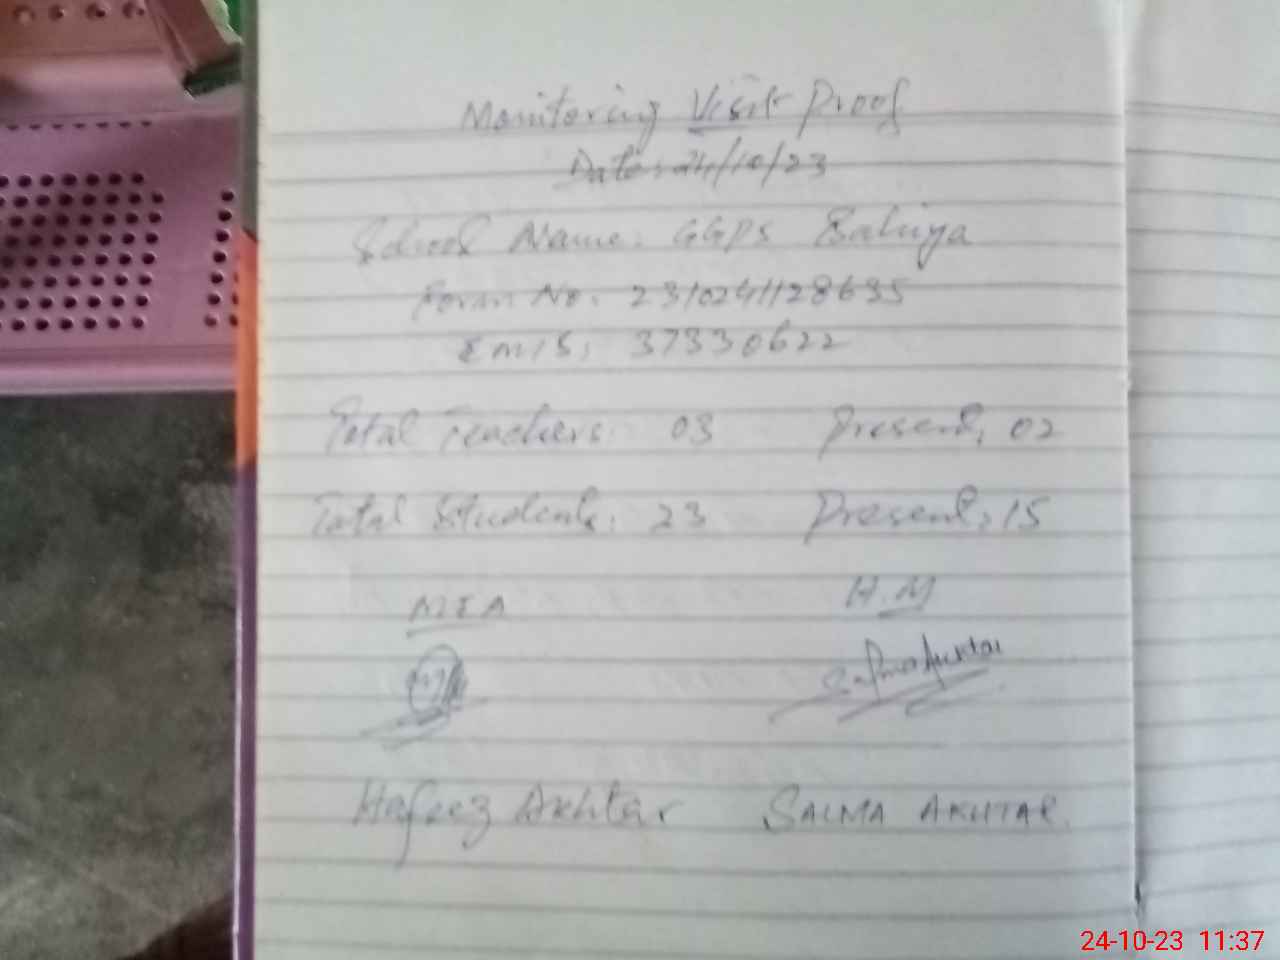 Monitoring Visit Proof
Date: 24/10/23
School Name: GGPS Bahiya
Form No. 2310241128635
EMIS: 37330622
Total Teachers: 03 Present: 02
Total Students: 23 Present: 15
MEA H.M
Salma Akhtar
Hafeez Akhtar SALMA AKHTAR.
24-10-23 11:37